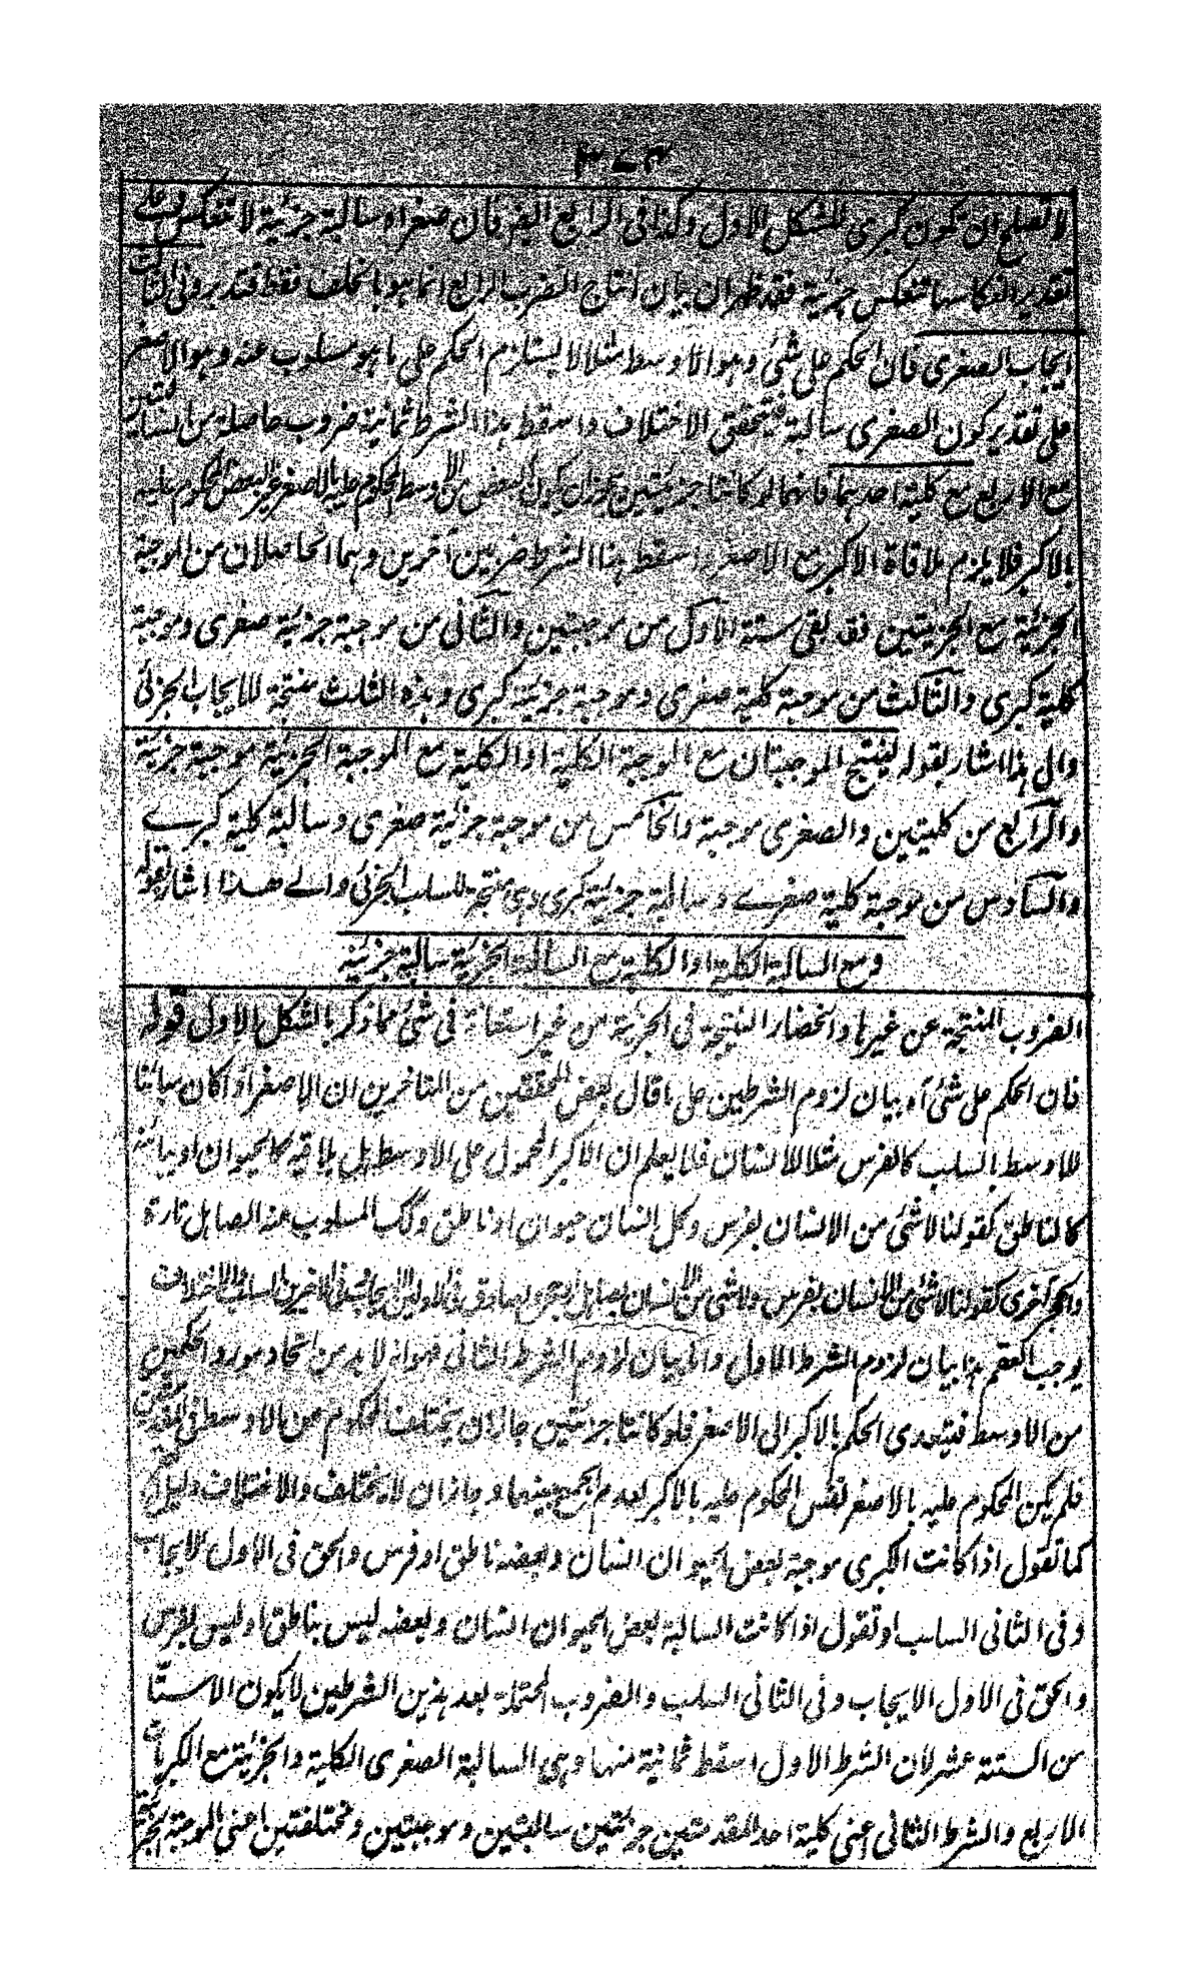 ٣٧٣
لا تصلح ان تكون كبرى للشكل الاول وكذا فى الرابع ايضا فان صغراه سالبة جزئية لا تنعكس وعلى
تقدير انعكاسها تنعكس جزئية فقد ظهر ان بيان انتاج الضرب الرابع انما هو بالخلف فقط فتدبر وفى الثالث
ايجاب الصغرى فان الحكم على شئ وهو الاوسط مثلا لا يستلزم الحكم على ما هو مسلوب عنه وهو الاصغر
على تقدير كون الصغرى سالبة فيتحقق الاختلاف واسقط هذا الشرط ثمانية ضروب حاصلة من السالبتين
مع الاربع مع كلية احدهما فانهما لو كانتا جزئيتين يجوز ان يكون البعض من الاوسط المحكوم عليه بالاصغر غير البعض المحكوم عليه
بالاكبر فلا يلزم ملاقاة الاكبر مع الاصغر اسقط هذا الشرط ضربين آخرين وهما الحاصلان من الموجبة
الجزئية مع الجزئيتين فقد بقى ستة الاول من موجبتين والثانى من موجبة جزئية صغرى وموجبة
كلية كبرى والثالث من موجبة كلية صغرى وموجبة جزئية كبرى وهذه الثلث منتجة للايجاب الجزئى
والى هذا اشار بقوله لينتج الموجبتان مع الموجبة الكلية او الكلية مع الموجبة الجزئية موجبة جزئية
والرابع من كليتين والصغرى موجبة والخامس من موجبة جزئية صغرى وسالبة كلية كبرے
والسادس من موجبة كلية صغرے وسالبة جزئية كبرى وهى منتجة للسلب الجزئى والے هذا اشار بقوله
ومع السالبة الكلية او الكلية مع السالبة الجزئية سالبة جزئية
الضروب المنتجة عن غيرها وانحصار النتيجة فى الجزئية من غير استعانة فى شئ مما ذكر بالشكل الاول قوله
فان الحكم على شئ آه بيان لزوم الشرطين على ما قال بعض المحققين من المتاخرين ان الاصغر اذا كان مبائنا
للاوسط بالسلب كالفرس مثلا للانسان فلا يعلم ان الاكبر المحمول على الاوسط هل يلاقيه كالحيوان او يبائنه
كالناطق كقولنا لا شئ من الانسان بفرس وكل انسان حيوان او ناطق وكك المسلوب عنه الصاهل تارة
والحجر اخرى كقولنا لا شئ من الانسان بفرس ولا شئ من الانسان بصاهل او بحجر والصادق فى الاولين الايجاب وفى الاخيرين السلب والاختلاف
يوجب العقم هذا بيان لزوم الشرط الاول واما بيان لزوم الشرط الثانى فهو انه لا بد من اتحاد مورد الحكمين
من الاوسط فيتعدى الحكم بالاكبر الى الاصغر فلو كانتا جزئيتين جاز ان يختلف المحكوم من الاوسط فى المقدمتين
فلم يكن المحكوم عليه بالاصغر نفس المحكوم عليه بالاكبر لعدم الجمع بينهما وجاز ان لا يختلف والاختلاف دليل العقم
كما تقول اذا كانت الكبرى موجبة بعض الحيوان انسان وبعضه ناطق او فرس والحق فى الاول الايجاب
وفى الثانى السلب او تقول اذا كانت السالبة بعض الحيوان انسان وبعضه ليس بناطق او ليس بفرس
والحق فى الاول الايجاب وفى الثانى السلب والضروب المحتملة بعد هذين الشرطين لا يكون الا ستا
من الستة عشر لان الشرط الاول اسقط ثمانية منها وهى السالبة الصغرى الكلية والجزئية مع الكبريات
الاربع والشرط الثانى اعنى كلية احد المقدمتين جزئيتين سالبتين وموجبتين ومختلفتين اعنى الموجبة الجزئية